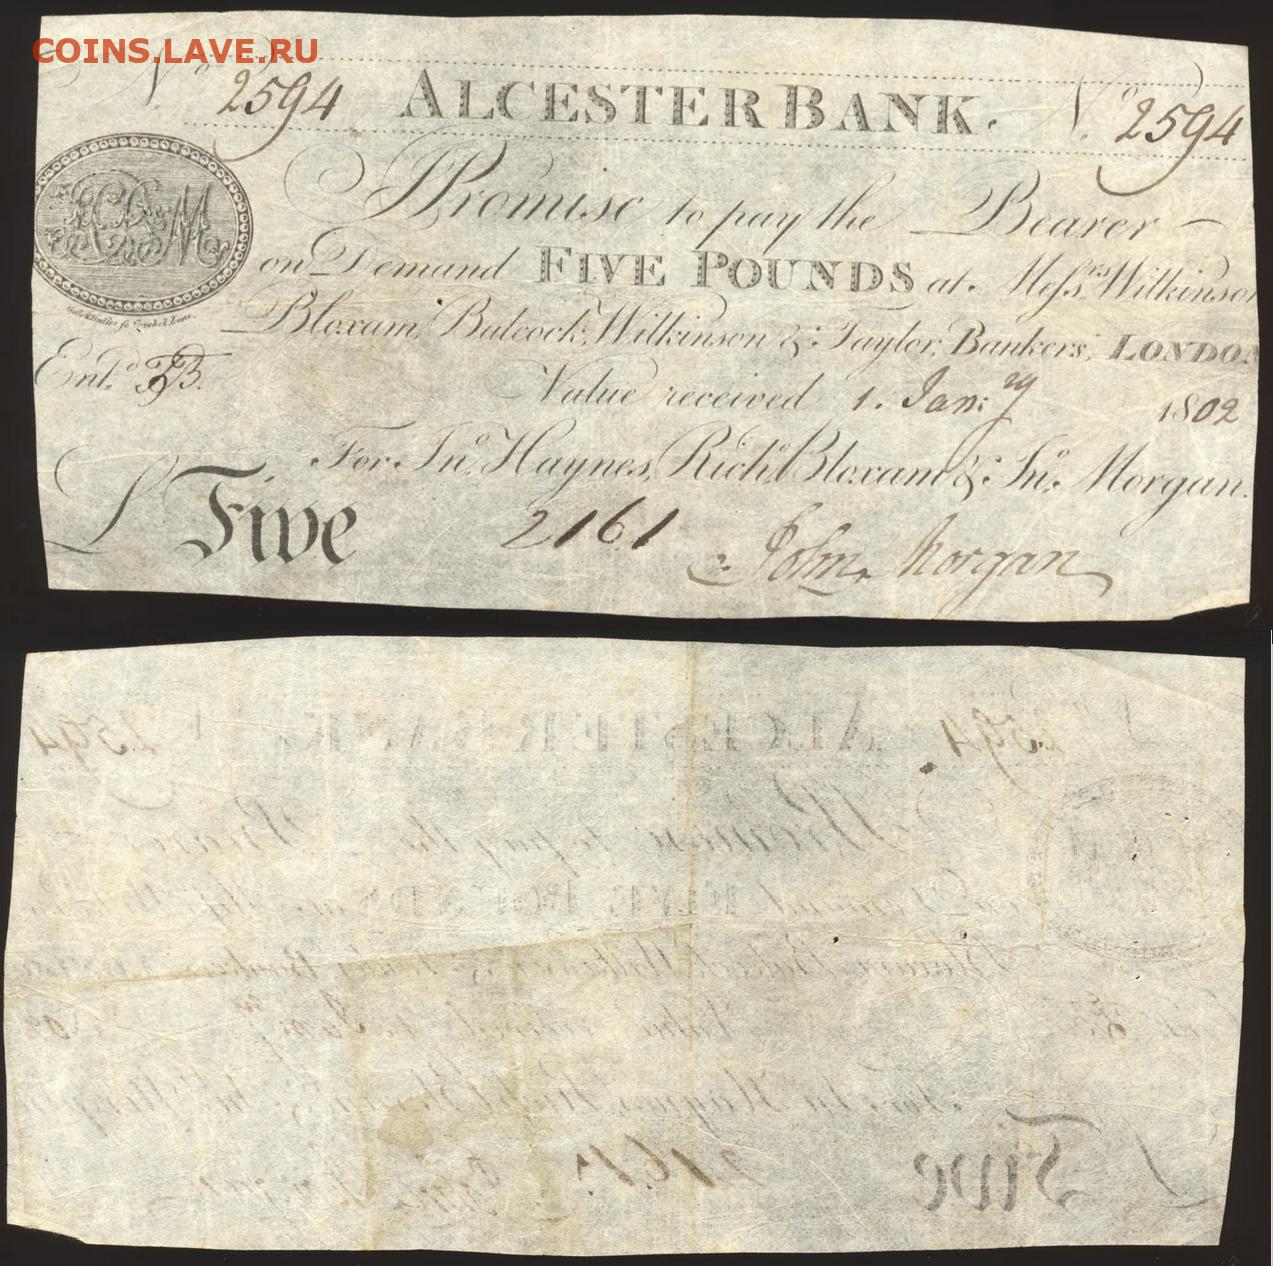 COINS.LAVE.RU
No. 2594 ALCESTER BANK. No. 2594
I Promise to pay the Bearer
on Demand FIVE POUNDS at Messrs. Wilkinson
Bloxam, Bulcock, Wilkinson & Taylor, Bankers, LONDON
Value received 1. Jan:ry 1802
Entd.
For Jno. Haynes, Richd. Bloxam & Jno. Morgan.
£ Five 2161 John Morgan